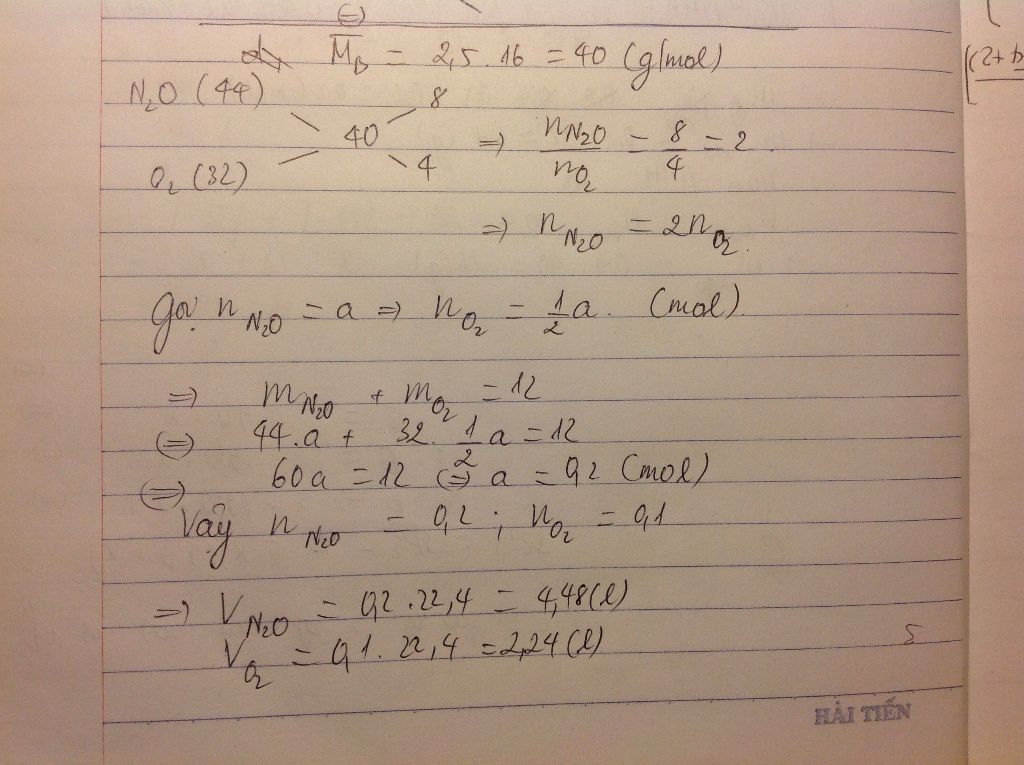 (=)
M̅_B = 2,5 . 16 = 40 (g/mol)
N₂O (44) 8
40 => n_N₂O / n_O₂ = 8/4 = 2.
O₂ (32) 4
=> n_N₂O = 2n_O₂.
Gọi n_N₂O = a => n_O₂ = 1/2 a. (mol).
=> m_N₂O + m_O₂ = 12
(=) 44.a + 32. 1/2 a = 12
(=) 60a = 12 (=) a = 0,2 (mol)
Vậy n_N₂O = 0,2 ; n_O₂ = 0,1
=> V_N₂O = 0,2 . 22,4 = 4,48(l)
V_O₂ = 0,1 . 22,4 = 2,24 (l)
5
HẢI TIẾN